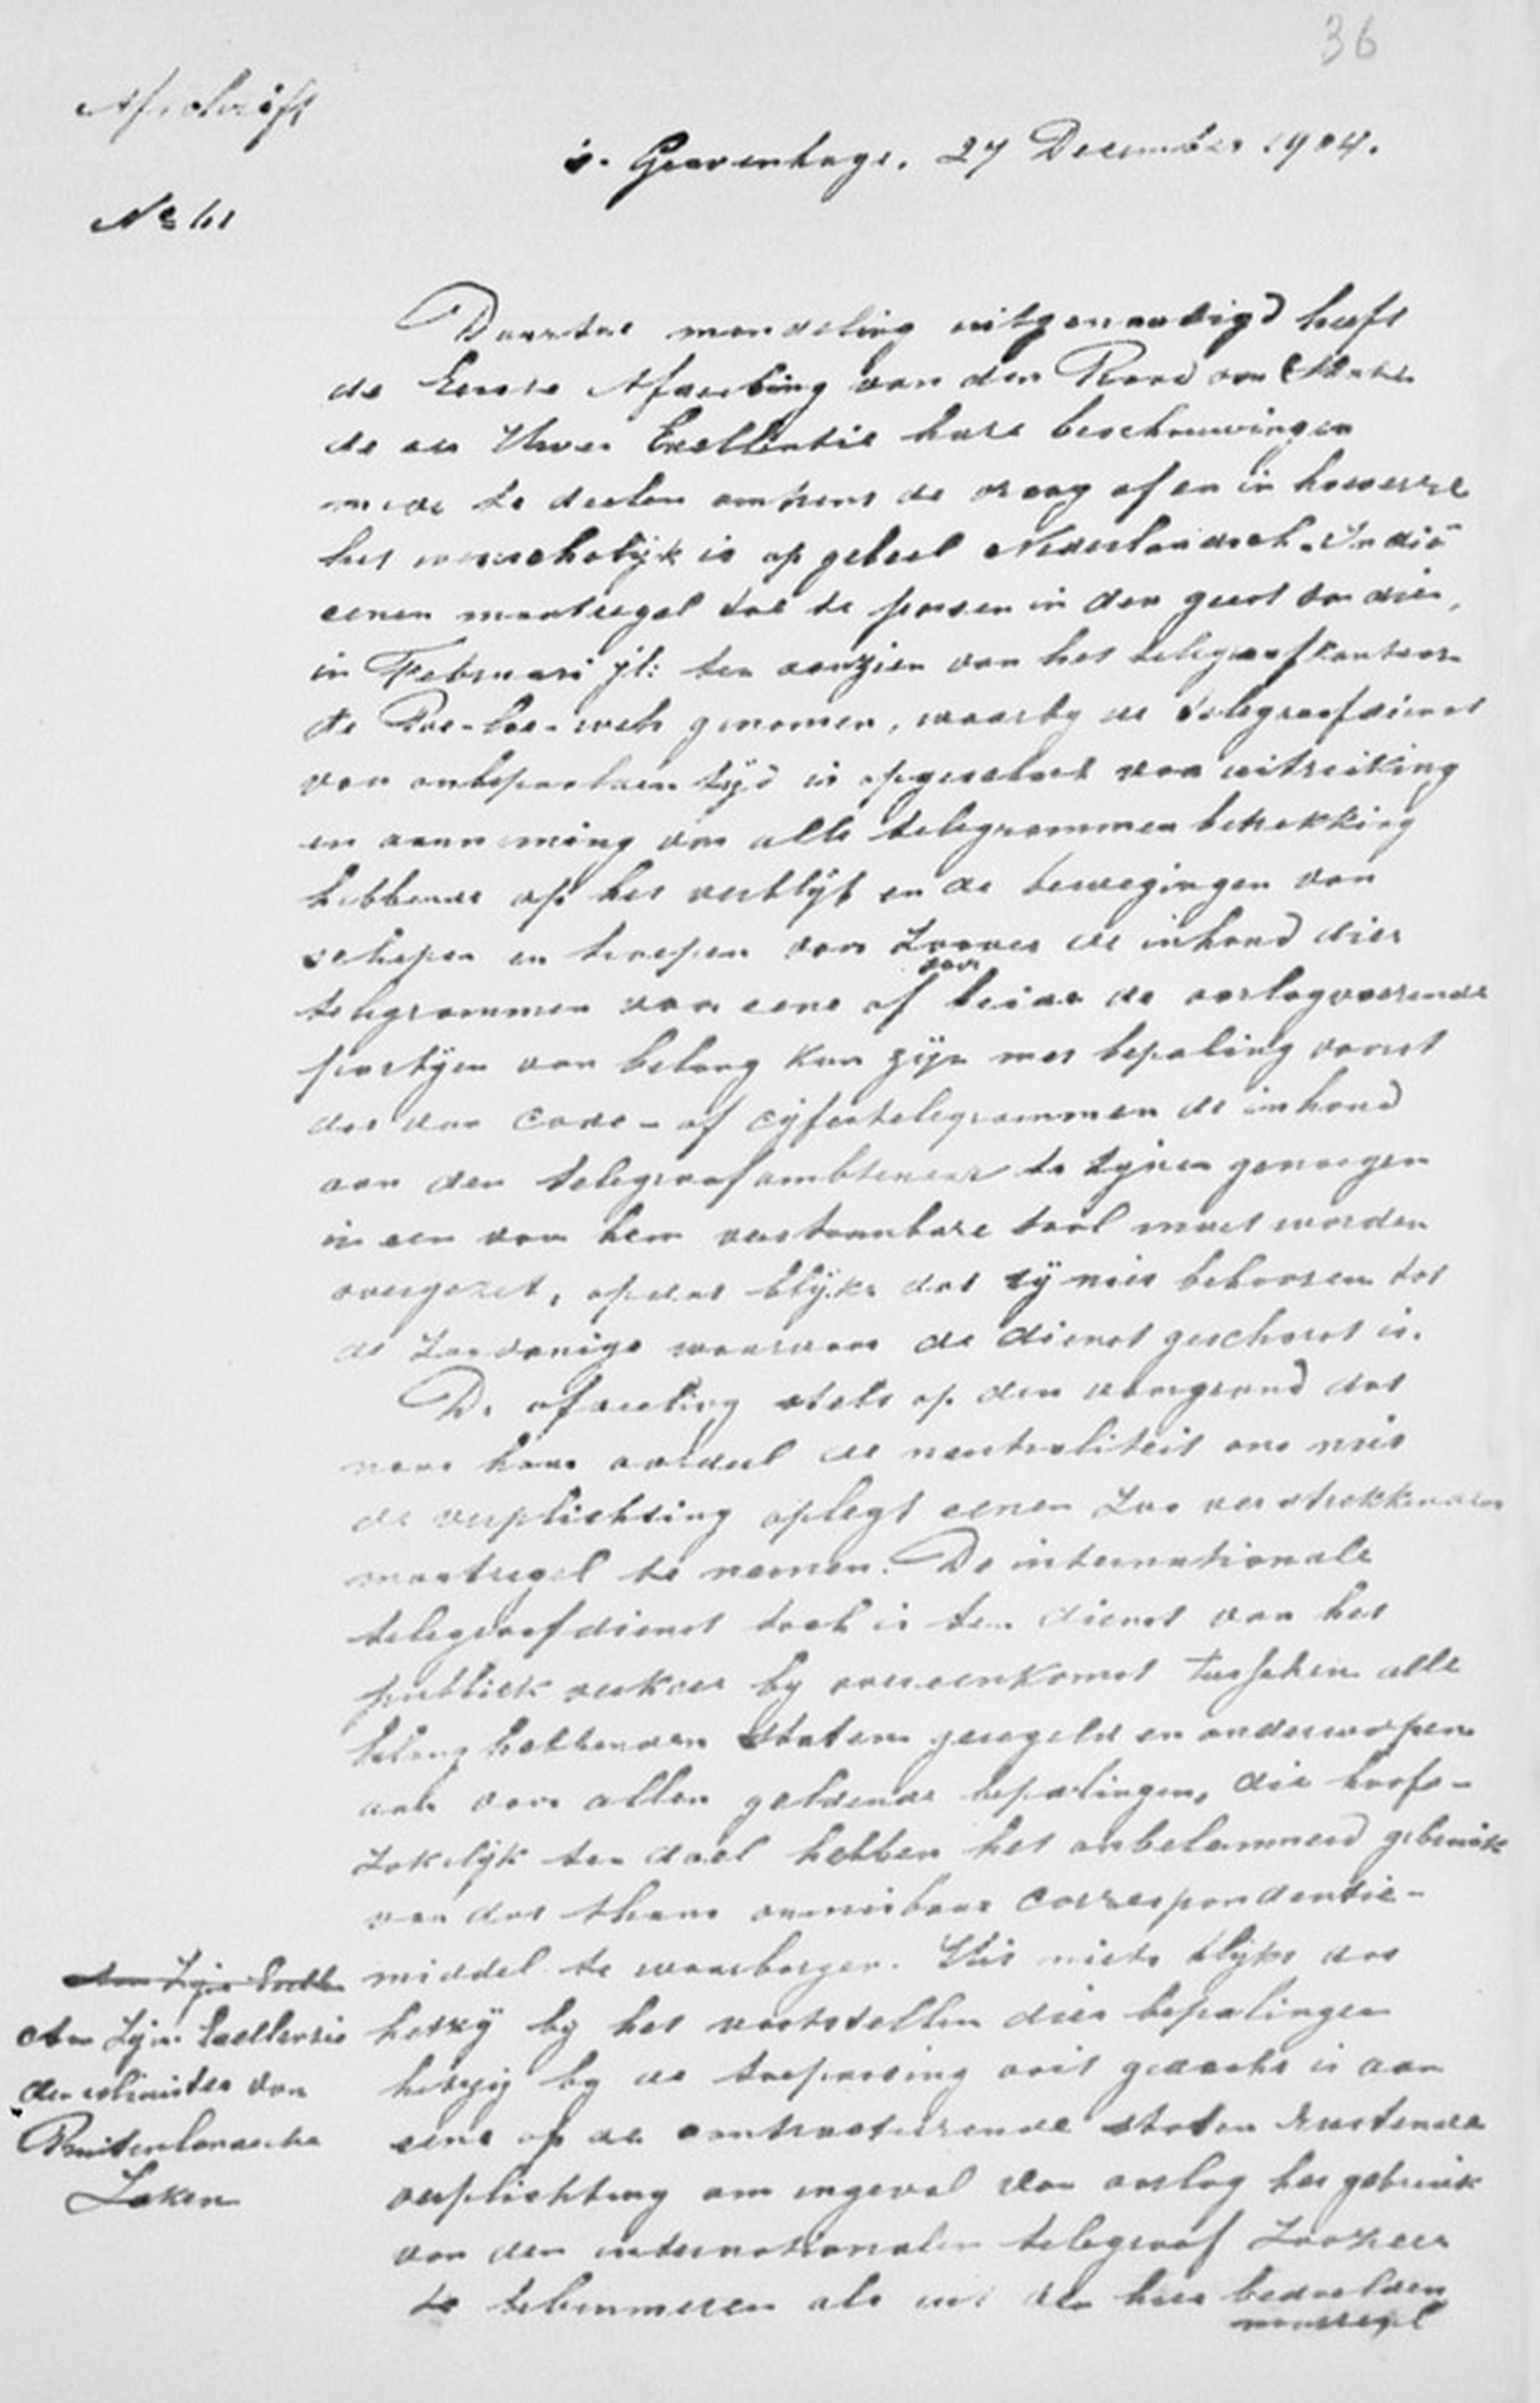 36
Afschrift
's-Gravenhage, 27 December 1904.
No 61
Daartoe mondeling uitgenoodigd heeft
de Eerste Afdeeling van den Raad van State
de eer Uwer Excellentie hare beschouwingen
mede te deelen omtrent de vraag of en in hoeverre
het wenschelijk is op geheel Nederlandsch-Indië
eenen maatregel toe te passen in den geest van dien,
in Februari jl: ten aanzien van het telegraafkantoor
te Poe-loe-weh genomen, waarby de telegraafdienst
voor onbepaalden tijd is opgeschort voor uitreiking
en aanneming van alle telegrammen betrekking
hebbende op het verblijf en de bewegingen van
schepen en troepen voor zoover de inhoud dier
telegrammen voor eene of voor beide de oorlogvoerende
partijen van belang kan zijn met bepaling voorts
dat van code- of cijfertelegrammen de inhoud
aan den telegraafambtenaar te zijnen genoegen
in een voor hem verstaanbare taal moet worden
overgezet, opdat blijke dat zij niet behooren tot
de zoodanige waarvoor de dienst geschorst is.
De afdeeling stelt op den voorgrond dat
naar haar oordeel de neutraliteit ons niet
de verplichting oplegt eenen zoo verstrekkenden
maatregel te nemen. De internationale
telegraafdienst toch is ten dienst van het
publiek verkeer by overeenkomst tusschen alle
belanghebbenden Staten geregeld en onderworpen
aan voor allen geldende bepalingen, die hoofd-
zakelijk ten doel hebben het onbelemmerd gebruik
van dat thans onmisbaar correspondentie-
middel te waarborgen. Uit niets blijkt dat
hetzij by het vaststellen dier bepalingen
hetzij by de toepassing ooit gedacht is aan
eene op de contracteerende staten rustende
verplichting om ingeval van oorlog het gebruik
van den internationalen telegraaf zoozeer
te belemmeren als in den hier bedoelden
maatregel
Aan Zijne Excell
Aan Zijne Excellentie
den Minister van
Buitenlandsche
Zaken